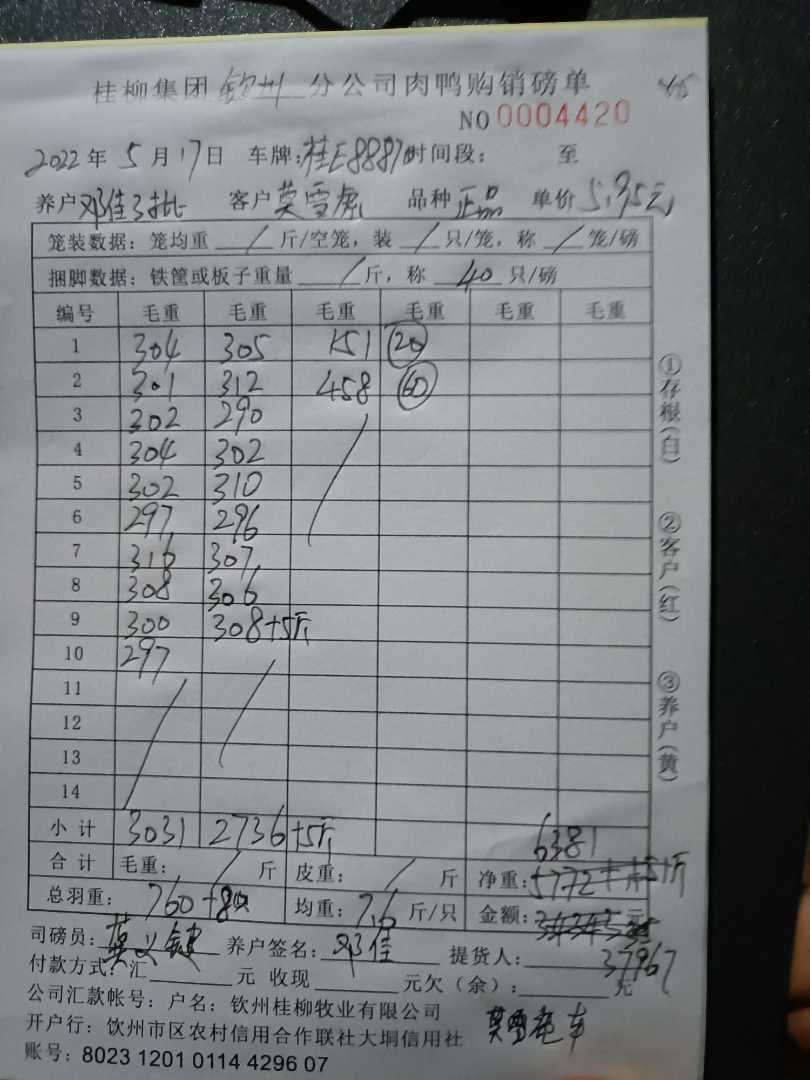 桂柳集团 钦州 分公司肉鸭购销磅单
NO 0004420
2022年 5月17日 车牌:桂E88870时间段: 至
养户 邓佳3批 客户 莫雪彪 品种 正品 单价 5.95元
笼装数据: 笼均重 / 斤/空笼, 装 / 只/笼, 称 / 笼/磅
捆脚数据: 铁筐或板子重量 / 斤, 称 40 只/磅
编号 毛重 毛重 毛重 毛重 毛重 毛重
1 304 305 151 20
2 301 312 458 60
3 302 290
4 304 302
5 302 310
6 297 296
7 316 307
8 308 306
9 300 308+5斤
10 297
11
12
13
14
小计 3031 2736+5斤
6381
合计 毛重: / 斤 皮重: / 斤 净重: 5772
总羽重: 760+80 均重: 7.6 斤/只 金额: 元
37967
司磅员: 莫义 养户签名: 邓佳 提货人:
付款方式: 汇 元 收现 元欠(余): 元
公司汇款帐号: 户名: 钦州桂柳牧业有限公司
开户行: 钦州市区农村信用合作联社大垌信用社
账号: 8023 1201 0114 4296 07
莫雪彪车
①存根(白)
②客户(红)
③养户(黄)